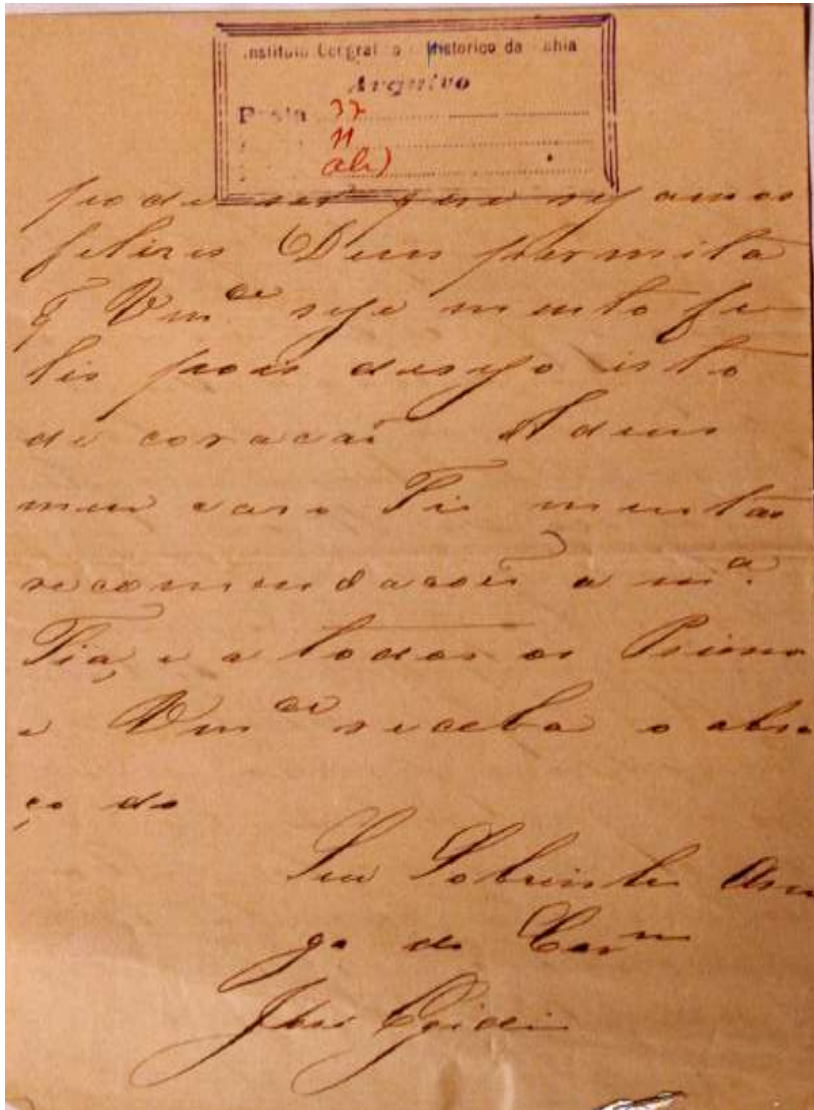 Instituto Geografico e Historico da Bahia
Arquivo
Pasta 37
11
pode ser que sejamos
felizes Deus permita
q̃ Vmce seje muito fe
lis pois desejo isto
de coracaõ Adeus
meu caro Tio muitas
recommendacoẽs a ma.
Tia, e a todos os Primo
e Vmce receba o abra
ço do
Seu Sobrinho Am
go do Coram
José Egidio